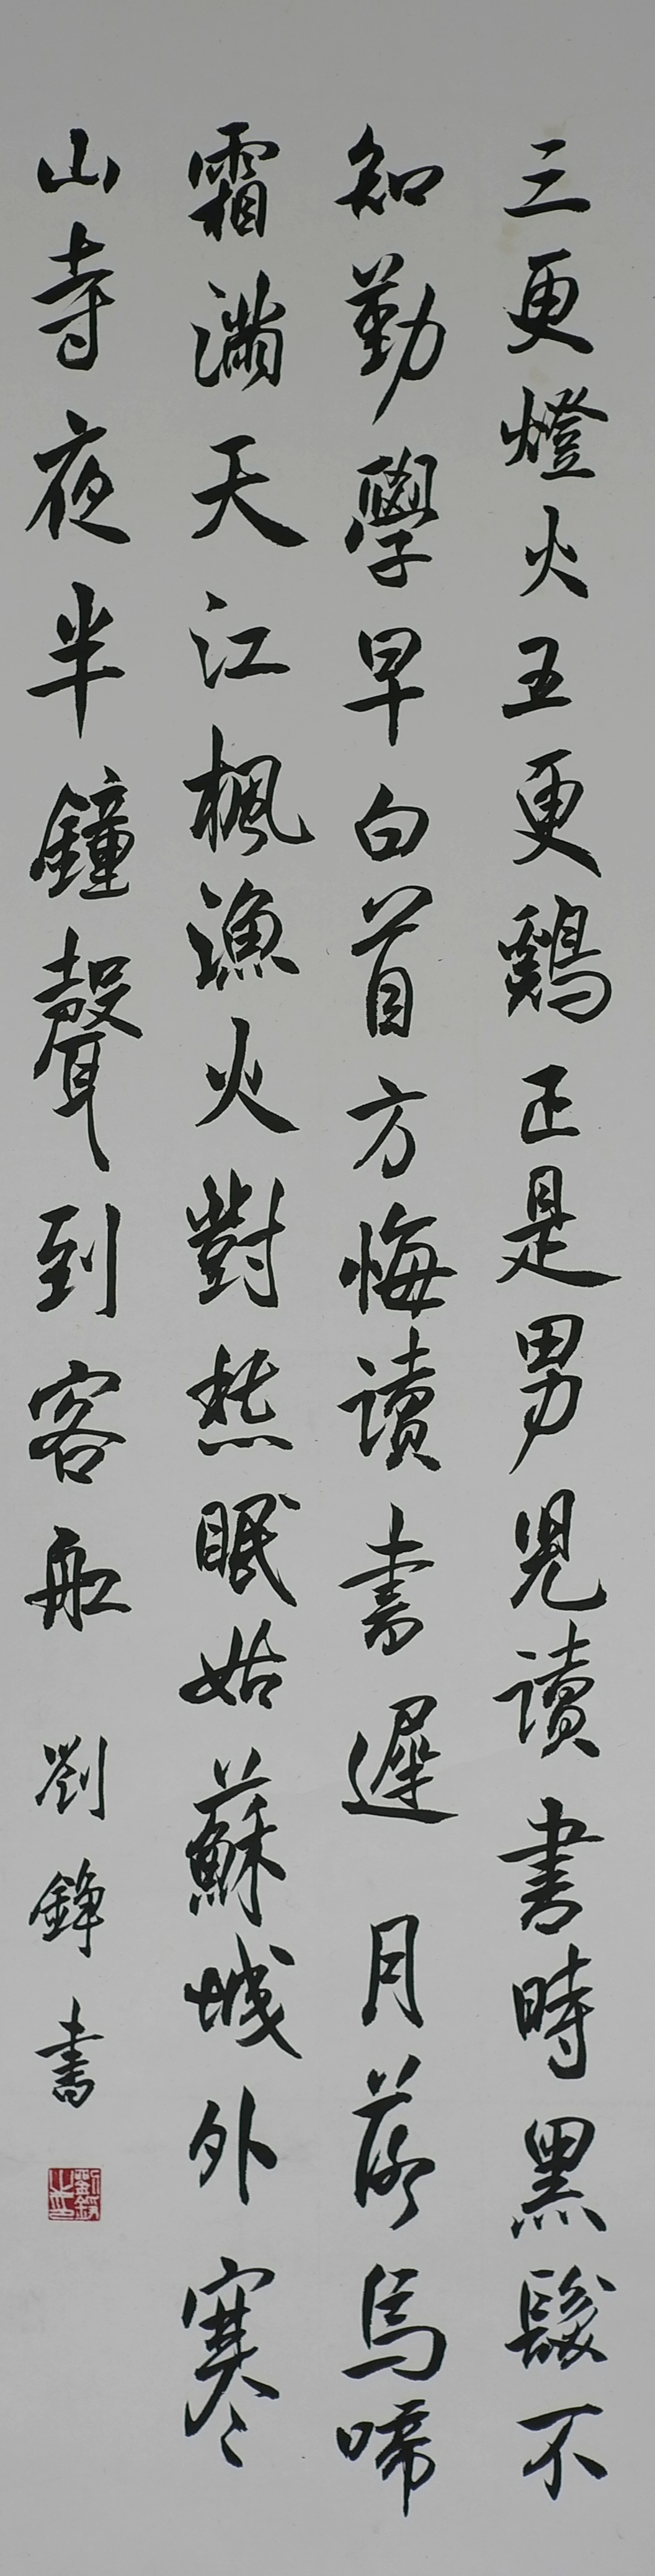 三更燈火五更鷄正是男兒讀書時黑髮不
知勤學早白首方悔讀書遲 月落烏啼
霜滿天江楓漁火對愁眠姑蘇城外寒
山寺夜半鐘聲到客船 劉錚書